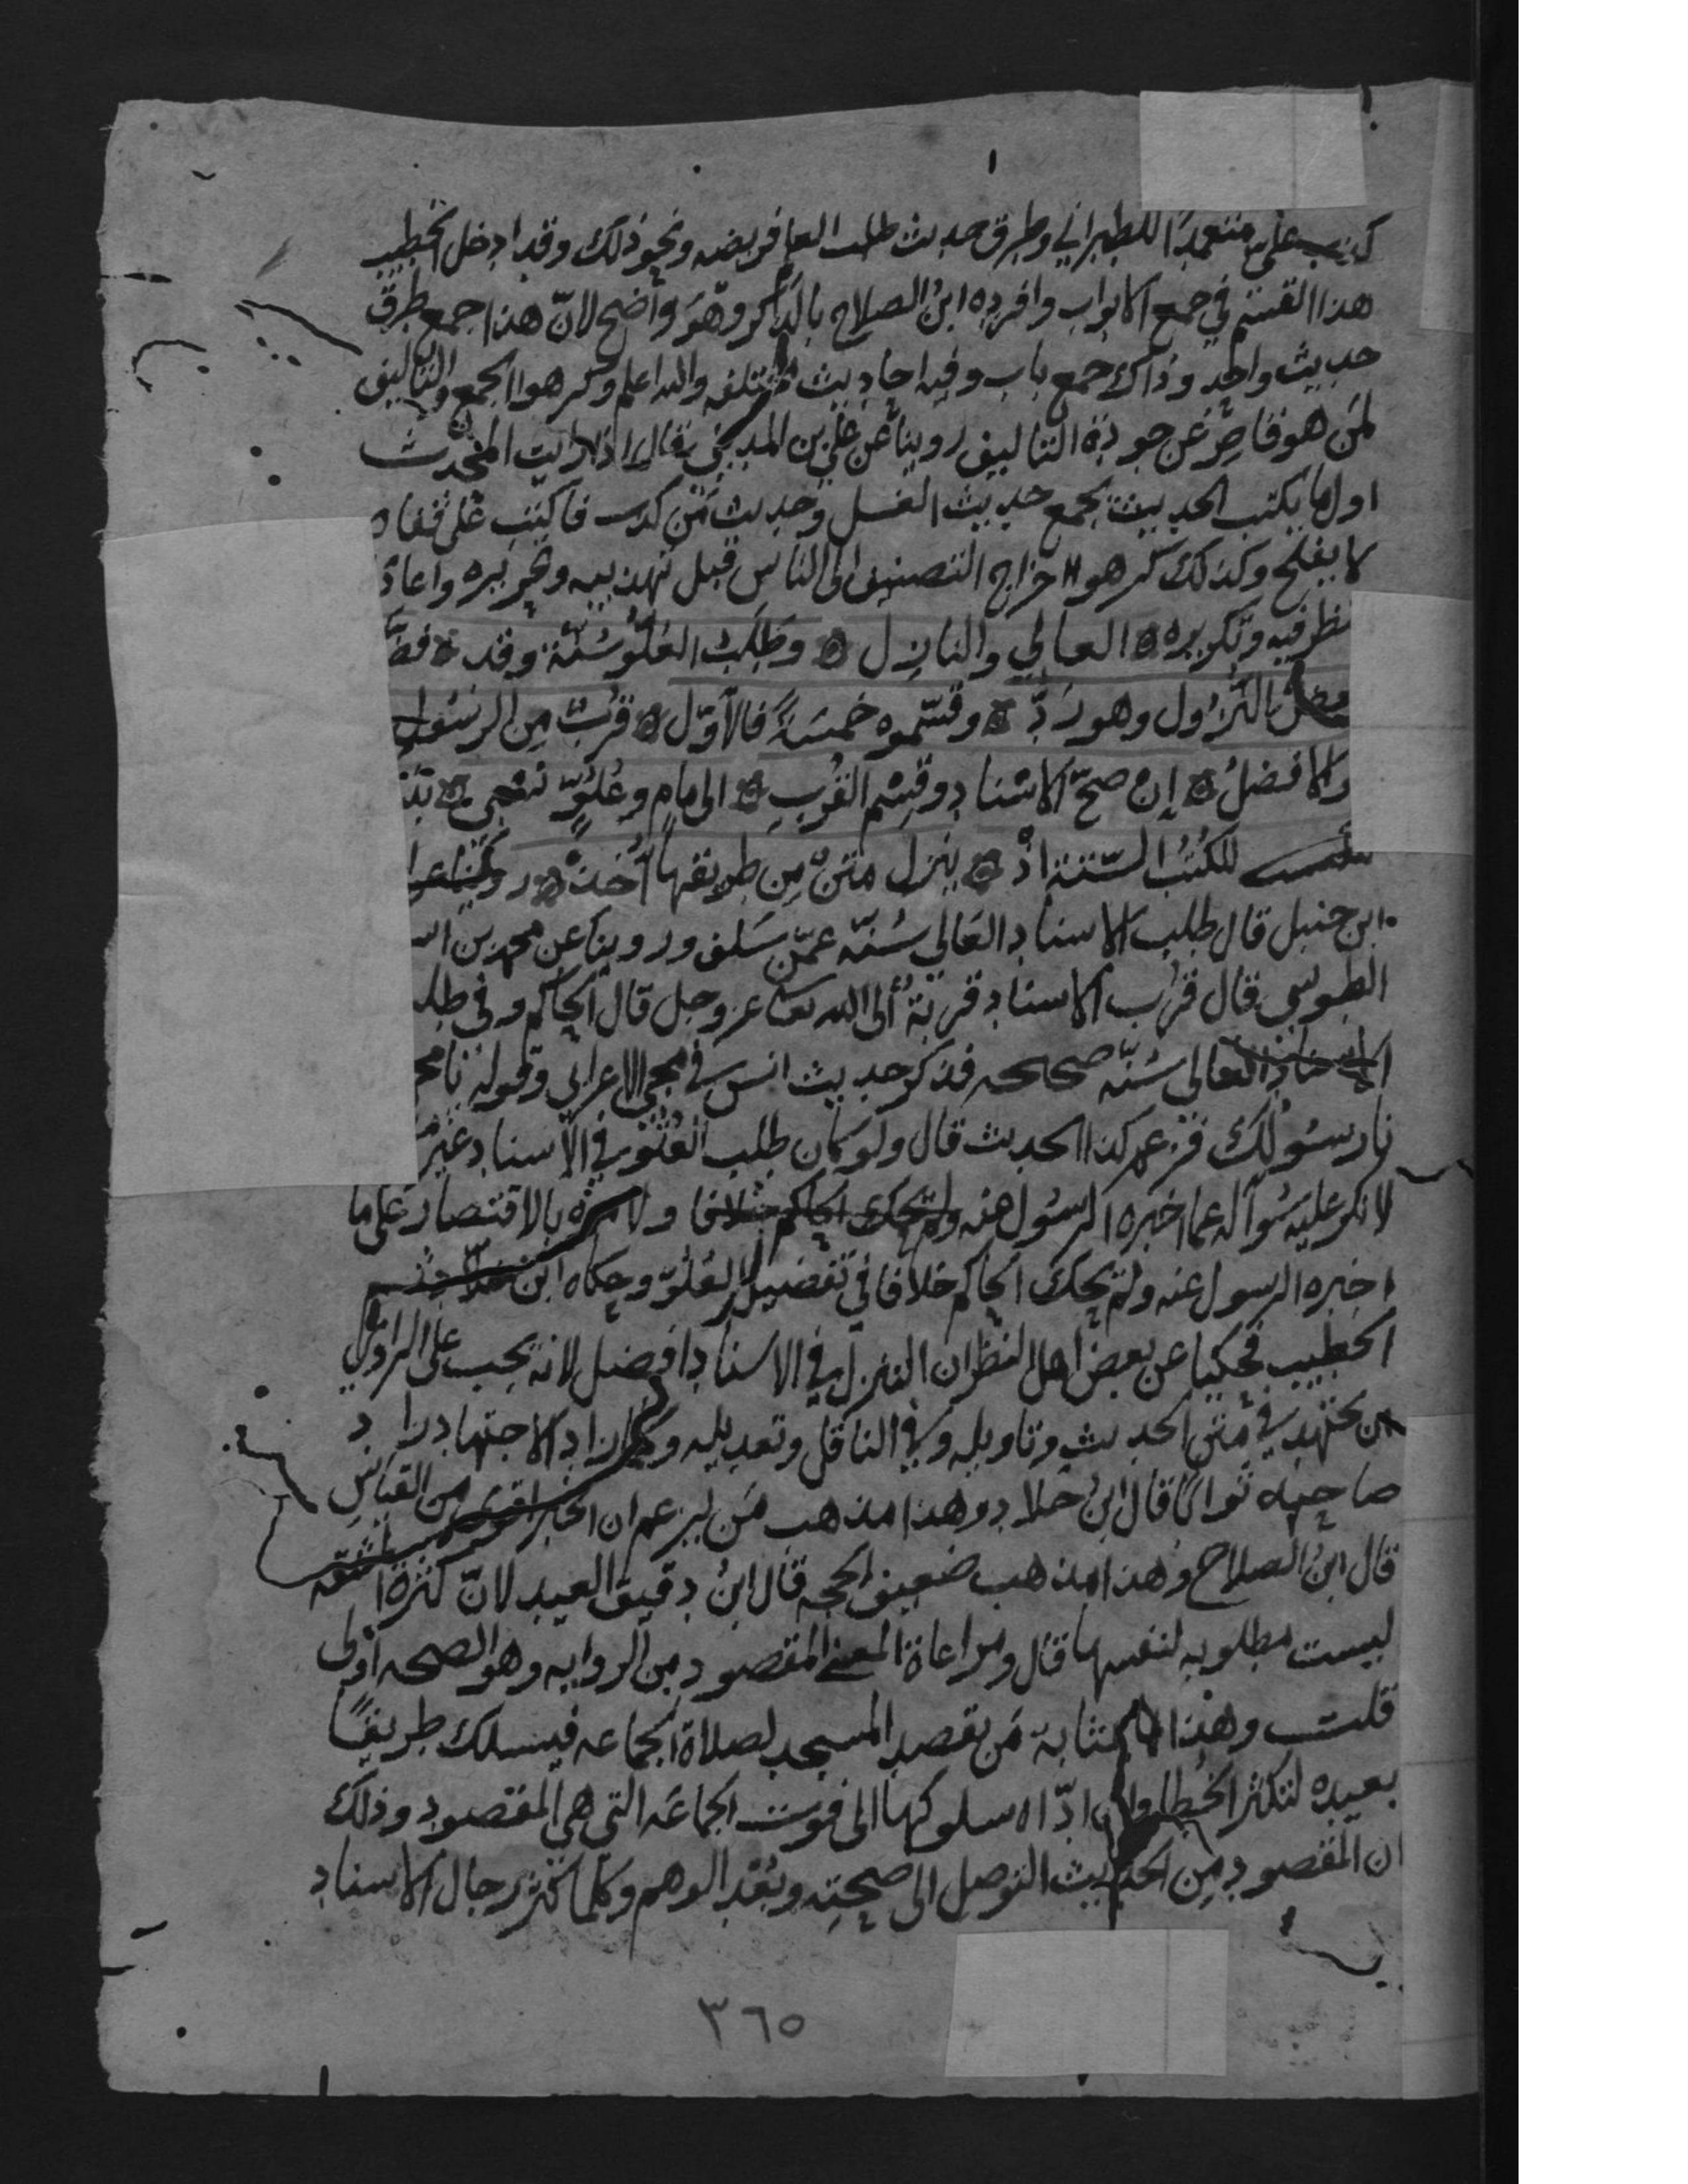 كذب علي متعمدا للطبراني وطرق حديث طلب العلم فريضه ونحو ذلك وقد ادخل الخطيب
هذا القسم في جمع الابواب وافرده ابن الصلاح بالذكر وهو واضح لانّ هذا جمع طرق
حديث واحد وذاك جمع باب وفيه احاديث مختلفه والله اعلم وكرهوا الجمع والتاليف
لمن هو قاصر عن جودة التاليف روينا عن علي بن المديني قال اذا رايت المحدث
اول ما يكتب الحديث يجمع حديث الغسل وحديث من كذب فاكتب على قفاه
لا يفلح وكذلك كرهوا اخراج التصنيف الى الناس قبل تهذيبه وتحريره واعاد
نظر فيه وتكريره العالي والنازل وطلب العلو سنة وقد فضّ
بعض النزول وهو ردّ وقسّموه خمسة فالاوّل قرب من الرسول
والافضل إن صحّ الاسناد وقسم القرب الى امام وعلوّ نسبي بنـ
للكتب الستة اذ ينزل متن من طريقها أخذ روينا عن
ابن حنبل قال طلب الاسناد العالي سنّة عمّن سلف وروينا عن محمد بن اسـ
الطوسي قال قرب الاسناد قربة الى الله عز وجل قال الحاكم وفي طلب
الاسناد العالي سنّة صحيحه فذكر حديث انس في مجي الاعرابي وقوله يا محـ
نا رسولك فزعم كذا الحديث قال ولو كان طلب العلو في الاسناد غير
لانكر عليه سؤاله عما اخبره الرسول عنه ولم يحك الحاكم خلافا ولامره بالاقتصار على ما
اخبره الرسول عنه ولم يحك الحاكم خلافا في تفضيل العلوّ وحكاه ابن خلاد ثم
الخطيب فحكيا عن بعض اهل النظر ان النزول في الاسناد افضل لانه يجب على الراوي
ان يجتهد في متن الحديث وتاويله وفي الناقل وتعديله وكلما زاد الاجتهاد زاد
صاحبه ثوابا قال ابن خلاد وهذا مذهب من يزعم ان الخبر اقوى من القياس
قال ابن الصلاح وهذا مذهب ضعيف الحجه قال ابن دقيق العيد لانّ كثرة المشقه
ليست مطلوبه لنفسها قال ومراعاة المعنى المقصود من الروايه وهو الصحه اولى
قلت وهذا بمثابة من يقصد المسجد لصلاة الجماعه فيسلك طريقًا
بعيده لتكثر الخطا وان ادّاه سلوكها الى فوت الجماعه التي هي المقصود وذلك
ان المقصود من الحديث التوصل الى صحته وبعد الوهم وكلما كثر رجال الاسناد
٣٦٥